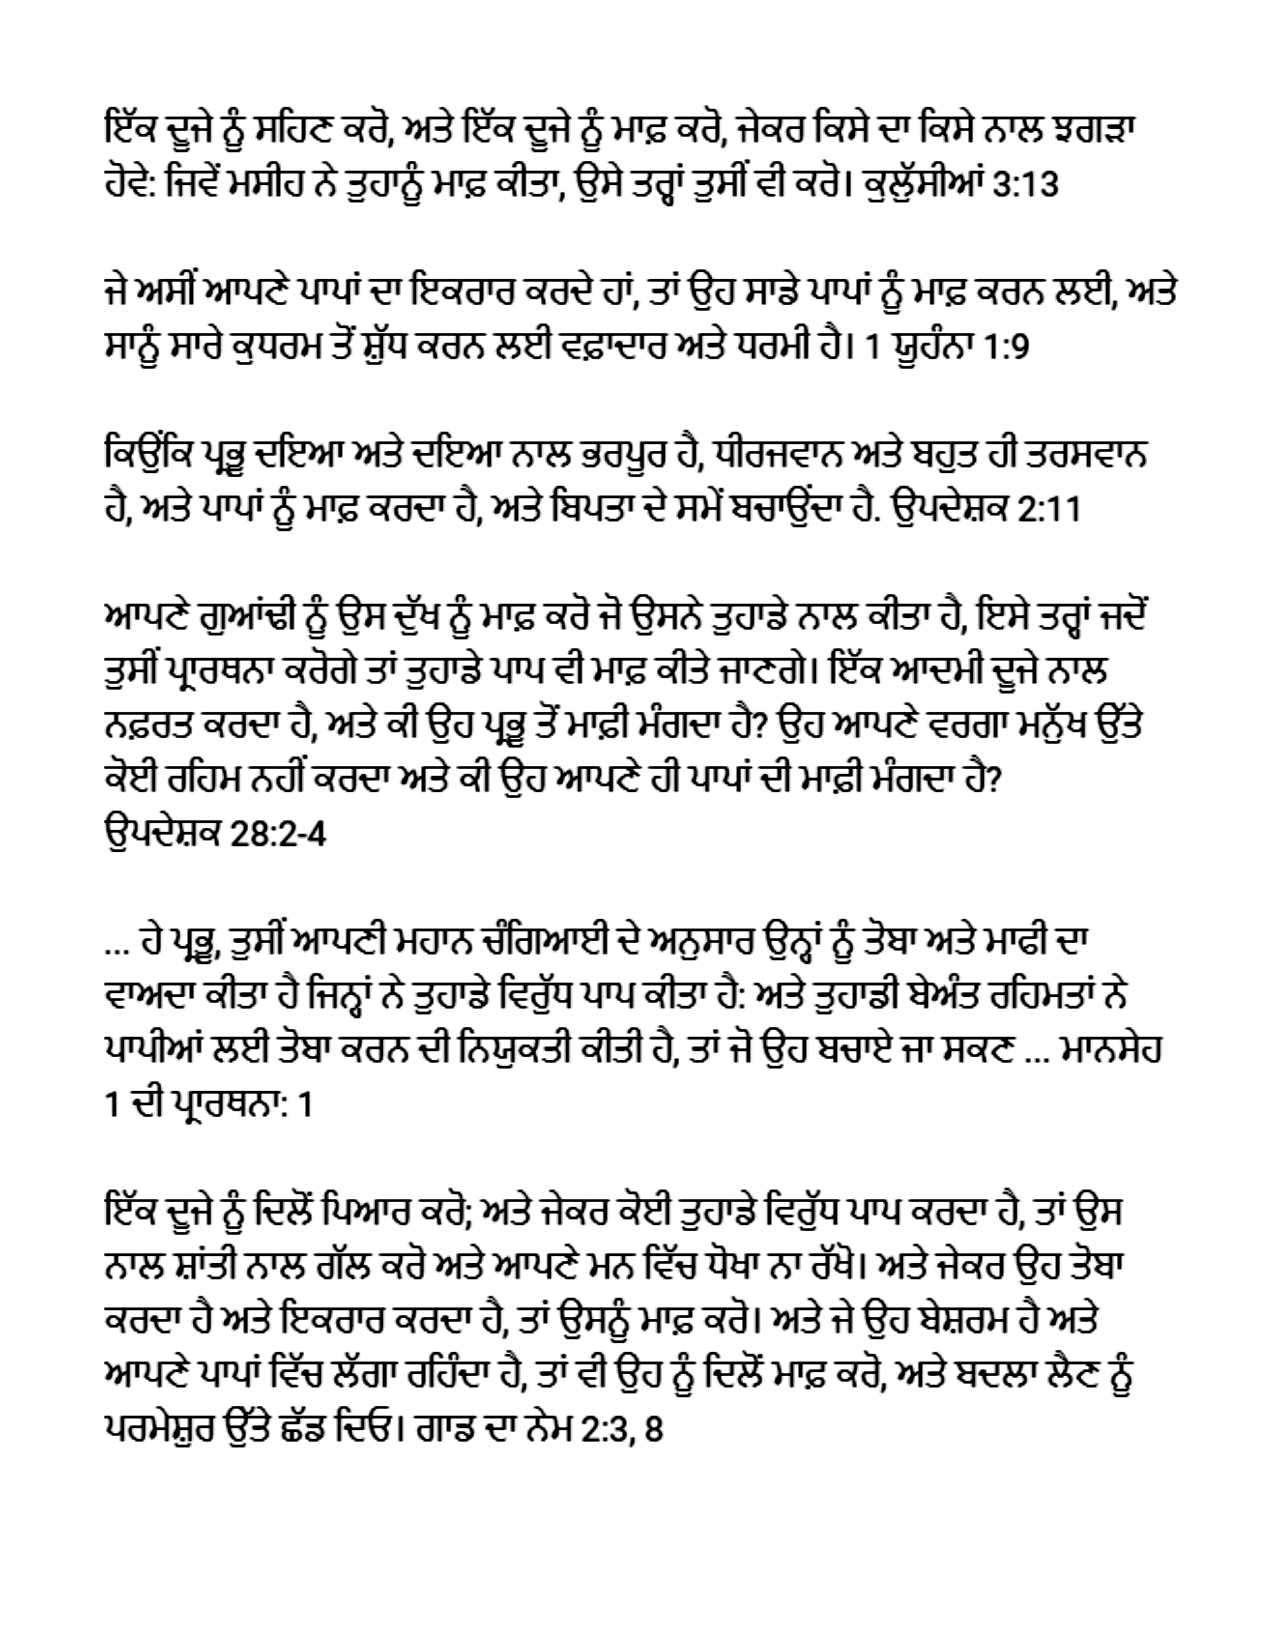 ਇੱਕ ਦੂਜੇ ਨੂੰ ਸਹਿਣ ਕਰੋ, ਅਤੇ ਇੱਕ ਦੂਜੇ ਨੂੰ ਮਾਫ਼ ਕਰੋ, ਜੇਕਰ ਕਿਸੇ ਦਾ ਕਿਸੇ ਨਾਲ ਝਗੜਾ
ਹੋਵੇ: ਜਿਵੇਂ ਮਸੀਹ ਨੇ ਤੁਹਾਨੂੰ ਮਾਫ਼ ਕੀਤਾ, ਉਸੇ ਤਰ੍ਹਾਂ ਤੁਸੀਂ ਵੀ ਕਰੋ। ਕੁਲੁੱਸੀਆਂ 3:13
ਜੇ ਅਸੀਂ ਆਪਣੇ ਪਾਪਾਂ ਦਾ ਇਕਰਾਰ ਕਰਦੇ ਹਾਂ, ਤਾਂ ਉਹ ਸਾਡੇ ਪਾਪਾਂ ਨੂੰ ਮਾਫ਼ ਕਰਨ ਲਈ, ਅਤੇ
ਸਾਨੂੰ ਸਾਰੇ ਕੁਧਰਮ ਤੋਂ ਸ਼ੁੱਧ ਕਰਨ ਲਈ ਵਫ਼ਾਦਾਰ ਅਤੇ ਧਰਮੀ ਹੈ। 1 ਯੂਹੰਨਾ 1:9
ਕਿਉਂਕਿ ਪ੍ਰਭੂ ਦਇਆ ਅਤੇ ਦਇਆ ਨਾਲ ਭਰਪੂਰ ਹੈ, ਧੀਰਜਵਾਨ ਅਤੇ ਬਹੁਤ ਹੀ ਤਰਸਵਾਨ
ਹੈ, ਅਤੇ ਪਾਪਾਂ ਨੂੰ ਮਾਫ਼ ਕਰਦਾ ਹੈ, ਅਤੇ ਬਿਪਤਾ ਦੇ ਸਮੇਂ ਬਚਾਉਂਦਾ ਹੈ. ਉਪਦੇਸ਼ਕ 2:11
ਆਪਣੇ ਗੁਆਂਢੀ ਨੂੰ ਉਸ ਦੁੱਖ ਨੂੰ ਮਾਫ਼ ਕਰੋ ਜੋ ਉਸਨੇ ਤੁਹਾਡੇ ਨਾਲ ਕੀਤਾ ਹੈ, ਇਸੇ ਤਰ੍ਹਾਂ ਜਦੋਂ
ਤੁਸੀਂ ਪ੍ਰਾਰਥਨਾ ਕਰੋਗੇ ਤਾਂ ਤੁਹਾਡੇ ਪਾਪ ਵੀ ਮਾਫ਼ ਕੀਤੇ ਜਾਣਗੇ। ਇੱਕ ਆਦਮੀ ਦੂਜੇ ਨਾਲ
ਨਫ਼ਰਤ ਕਰਦਾ ਹੈ, ਅਤੇ ਕੀ ਉਹ ਪ੍ਰਭੂ ਤੋਂ ਮਾਫ਼ੀ ਮੰਗਦਾ ਹੈ? ਉਹ ਆਪਣੇ ਵਰਗਾ ਮਨੁੱਖ ਉੱਤੇ
ਕੋਈ ਰਹਿਮ ਨਹੀਂ ਕਰਦਾ ਅਤੇ ਕੀ ਉਹ ਆਪਣੇ ਹੀ ਪਾਪਾਂ ਦੀ ਮਾਫ਼ੀ ਮੰਗਦਾ ਹੈ?
ਉਪਦੇਸ਼ਕ 28:2-4
... ਹੇ ਪ੍ਰਭੂ, ਤੁਸੀਂ ਆਪਣੀ ਮਹਾਨ ਚੰਗਿਆਈ ਦੇ ਅਨੁਸਾਰ ਉਨ੍ਹਾਂ ਨੂੰ ਤੋਬਾ ਅਤੇ ਮਾਫੀ ਦਾ
ਵਾਅਦਾ ਕੀਤਾ ਹੈ ਜਿਨ੍ਹਾਂ ਨੇ ਤੁਹਾਡੇ ਵਿਰੁੱਧ ਪਾਪ ਕੀਤਾ ਹੈ: ਅਤੇ ਤੁਹਾਡੀ ਬੇਅੰਤ ਰਹਿਮਤਾਂ ਨੇ
ਪਾਪੀਆਂ ਲਈ ਤੋਬਾ ਕਰਨ ਦੀ ਨਿਯੁਕਤੀ ਕੀਤੀ ਹੈ, ਤਾਂ ਜੋ ਉਹ ਬਚਾਏ ਜਾ ਸਕਣ ... ਮਾਨਸੇਹ
1 ਦੀ ਪ੍ਰਾਰਥਨਾ: 1
ਇੱਕ ਦੂਜੇ ਨੂੰ ਦਿਲੋਂ ਪਿਆਰ ਕਰੋ; ਅਤੇ ਜੇਕਰ ਕੋਈ ਤੁਹਾਡੇ ਵਿਰੁੱਧ ਪਾਪ ਕਰਦਾ ਹੈ, ਤਾਂ ਉਸ
ਨਾਲ ਸ਼ਾਂਤੀ ਨਾਲ ਗੱਲ ਕਰੋ ਅਤੇ ਆਪਣੇ ਮਨ ਵਿੱਚ ਧੋਖਾ ਨਾ ਰੱਖੋ। ਅਤੇ ਜੇਕਰ ਉਹ ਤੋਬਾ
ਕਰਦਾ ਹੈ ਅਤੇ ਇਕਰਾਰ ਕਰਦਾ ਹੈ, ਤਾਂ ਉਸਨੂੰ ਮਾਫ਼ ਕਰੋ। ਅਤੇ ਜੇ ਉਹ ਬੇਸ਼ਰਮ ਹੈ ਅਤੇ
ਆਪਣੇ ਪਾਪਾਂ ਵਿੱਚ ਲੱਗਾ ਰਹਿੰਦਾ ਹੈ, ਤਾਂ ਵੀ ਉਹ ਨੂੰ ਦਿਲੋਂ ਮਾਫ਼ ਕਰੋ, ਅਤੇ ਬਦਲਾ ਲੈਣ ਨੂੰ
ਪਰਮੇਸ਼ੁਰ ਉੱਤੇ ਛੱਡ ਦਿਓ। ਗਾਡ ਦਾ ਨੇਮ 2:3, 8